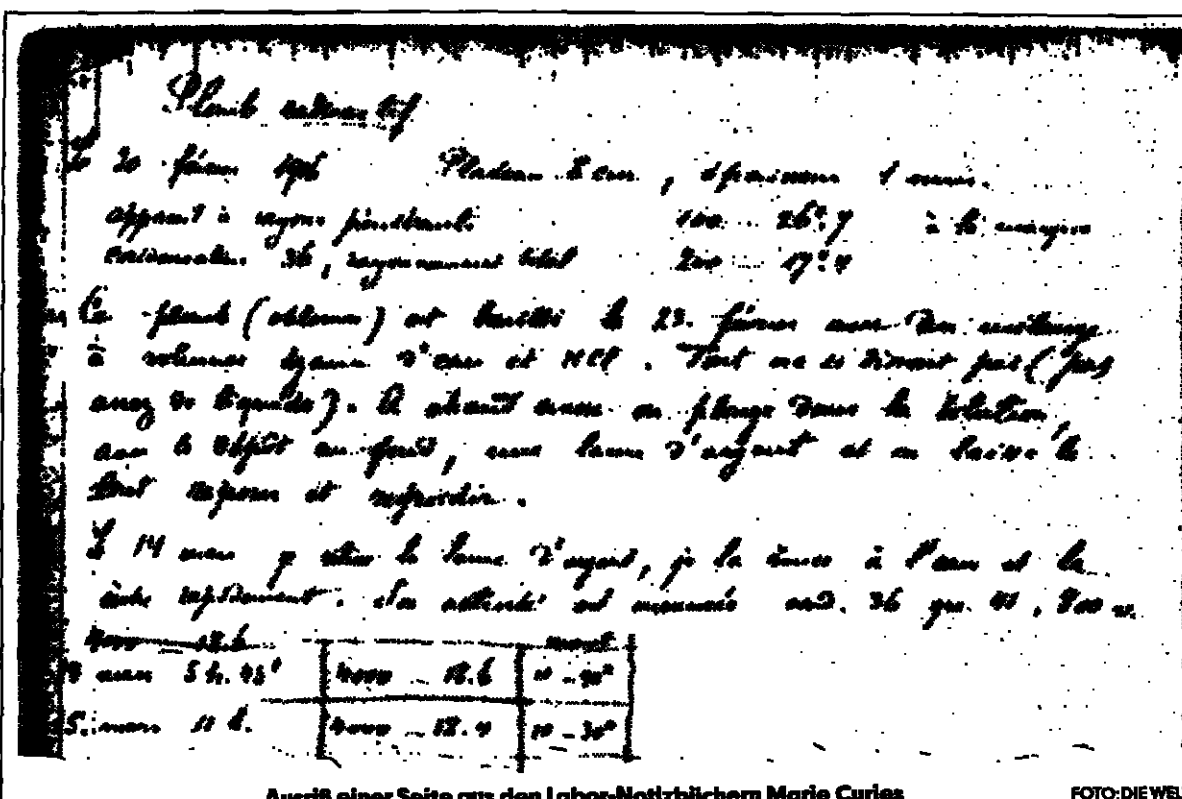 Plomb radioactif
Le 20 février 1906 Plateau 8 cm, épaisseur 1 mm.
appareil à rayons pénétrants 100 26".7 à la marque
condensateur 3b, rayonnement total 200 17".4
Le plomb (obtenu) est bouilli le 23 février avec un mélange
à volumes égaux d'eau et HCl. Tout ne se dissout pas (pas
assez de liquide). À chaud encore on plonge dans la solution,
avec le dépôt au fond, une lame d'argent et on laisse le
tout reposer et refroidir.
Le 14 mars je retire la lame d'argent, je la rince à l'eau et la
rapidement. Son activité est mesurée cond. 3b
4000 18.6
mars 5 h. 45' 4000 18.6
mars 11 h. 4000 18.4
Ausriß einer Seite aus den Labor-Notizbüchern Marie Curies
FOTO: DIE WEL